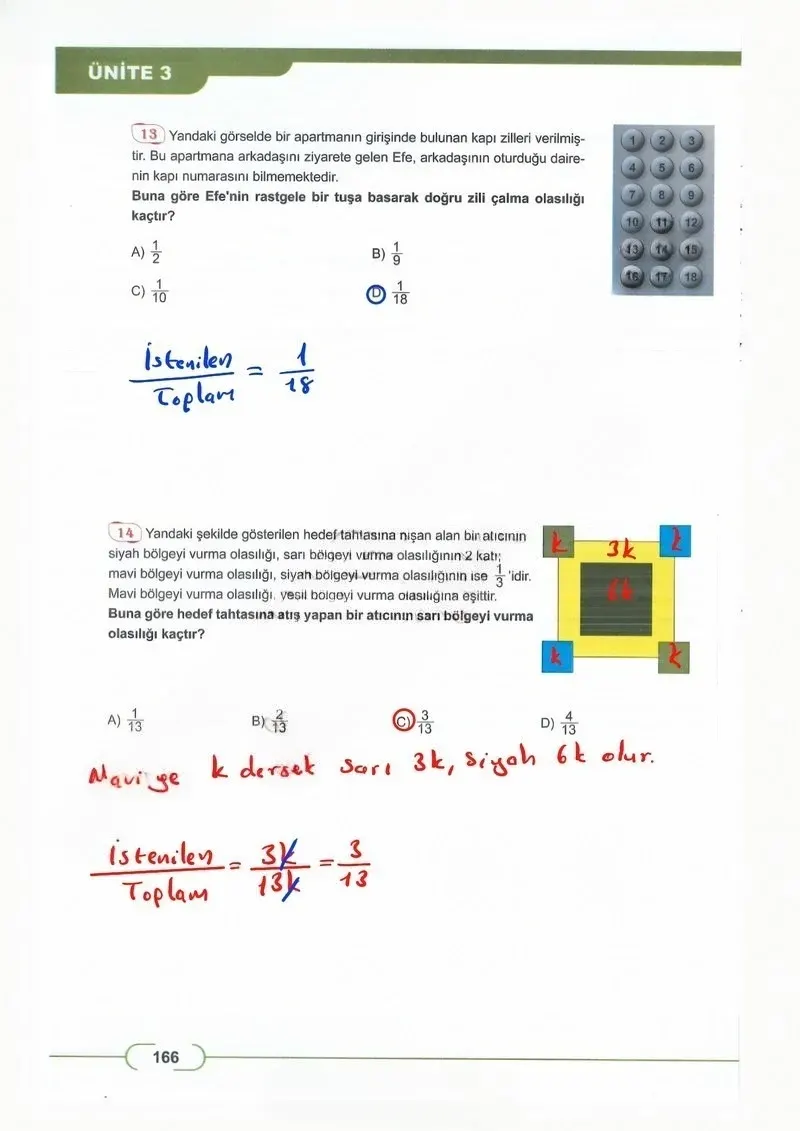 ÜNİTE 3
13 Yandaki görselde bir apartmanın girişinde bulunan kapı zilleri verilmiş-
tir. Bu apartmana arkadaşını ziyarete gelen Efe, arkadaşının oturduğu daire-
nin kapı numarasını bilmemektedir.
Buna göre Efe'nin rastgele bir tuşa basarak doğru zili çalma olasılığı
kaçtır?
1 2 3
4 5 6
7 8 9
10 11 12
13 14 15
16 17 18
A) 1/2 B) 1/9
C) 1/10 D) 1/18
İstenilen/Toplam = 1/18
14 Yandaki şekilde gösterilen hedef tahtasına nişan alan bir atıcının
siyah bölgeyi vurma olasılığı, sarı bölgeyi vurma olasılığının 2 katı;
mavi bölgeyi vurma olasılığı, siyah bölgeyi vurma olasılığının ise 1/3 'idir.
Mavi bölgeyi vurma olasılığı, yeşil bölgeyi vurma olasılığına eşittir.
Buna göre hedef tahtasına atış yapan bir atıcının sarı bölgeyi vurma
olasılığı kaçtır?
k 3k k
6k
k k
A) 1/13 B) 2/13 C) 3/13 D) 4/13
Maviye k dersek sarı 3k, siyah 6k olur.
İstenilen/Toplam = 3k/13k = 3/13
166